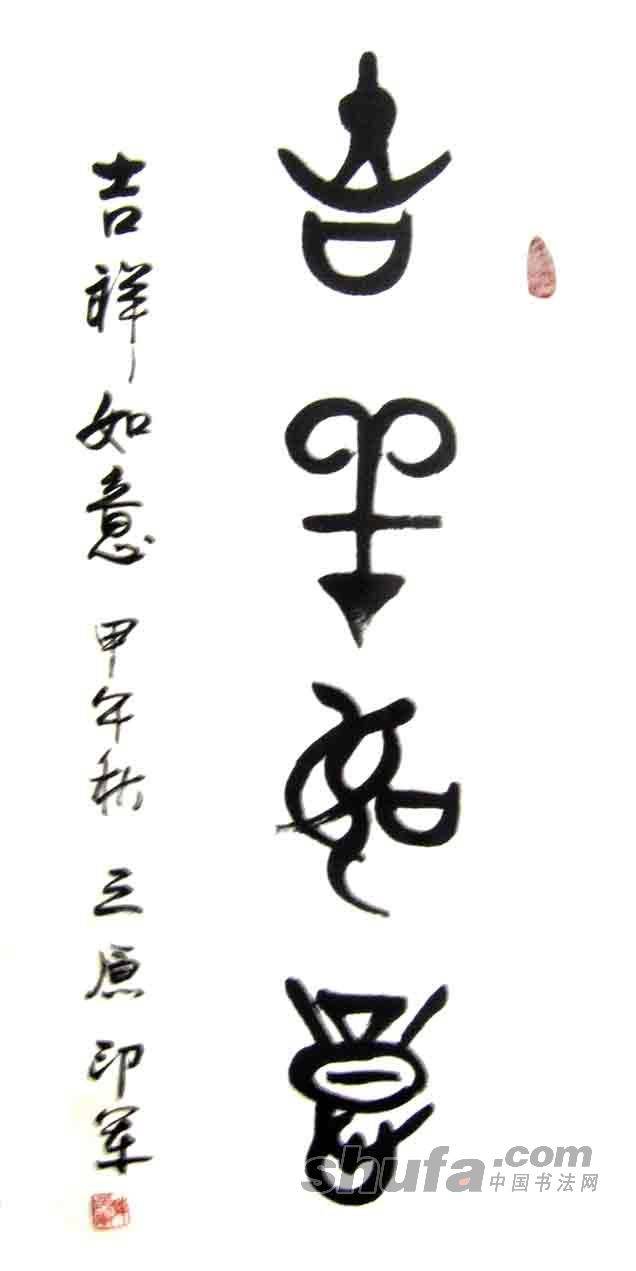 吉祥如意
吉祥如意 甲午秋 三原 印军
shufa.com
中国书法网